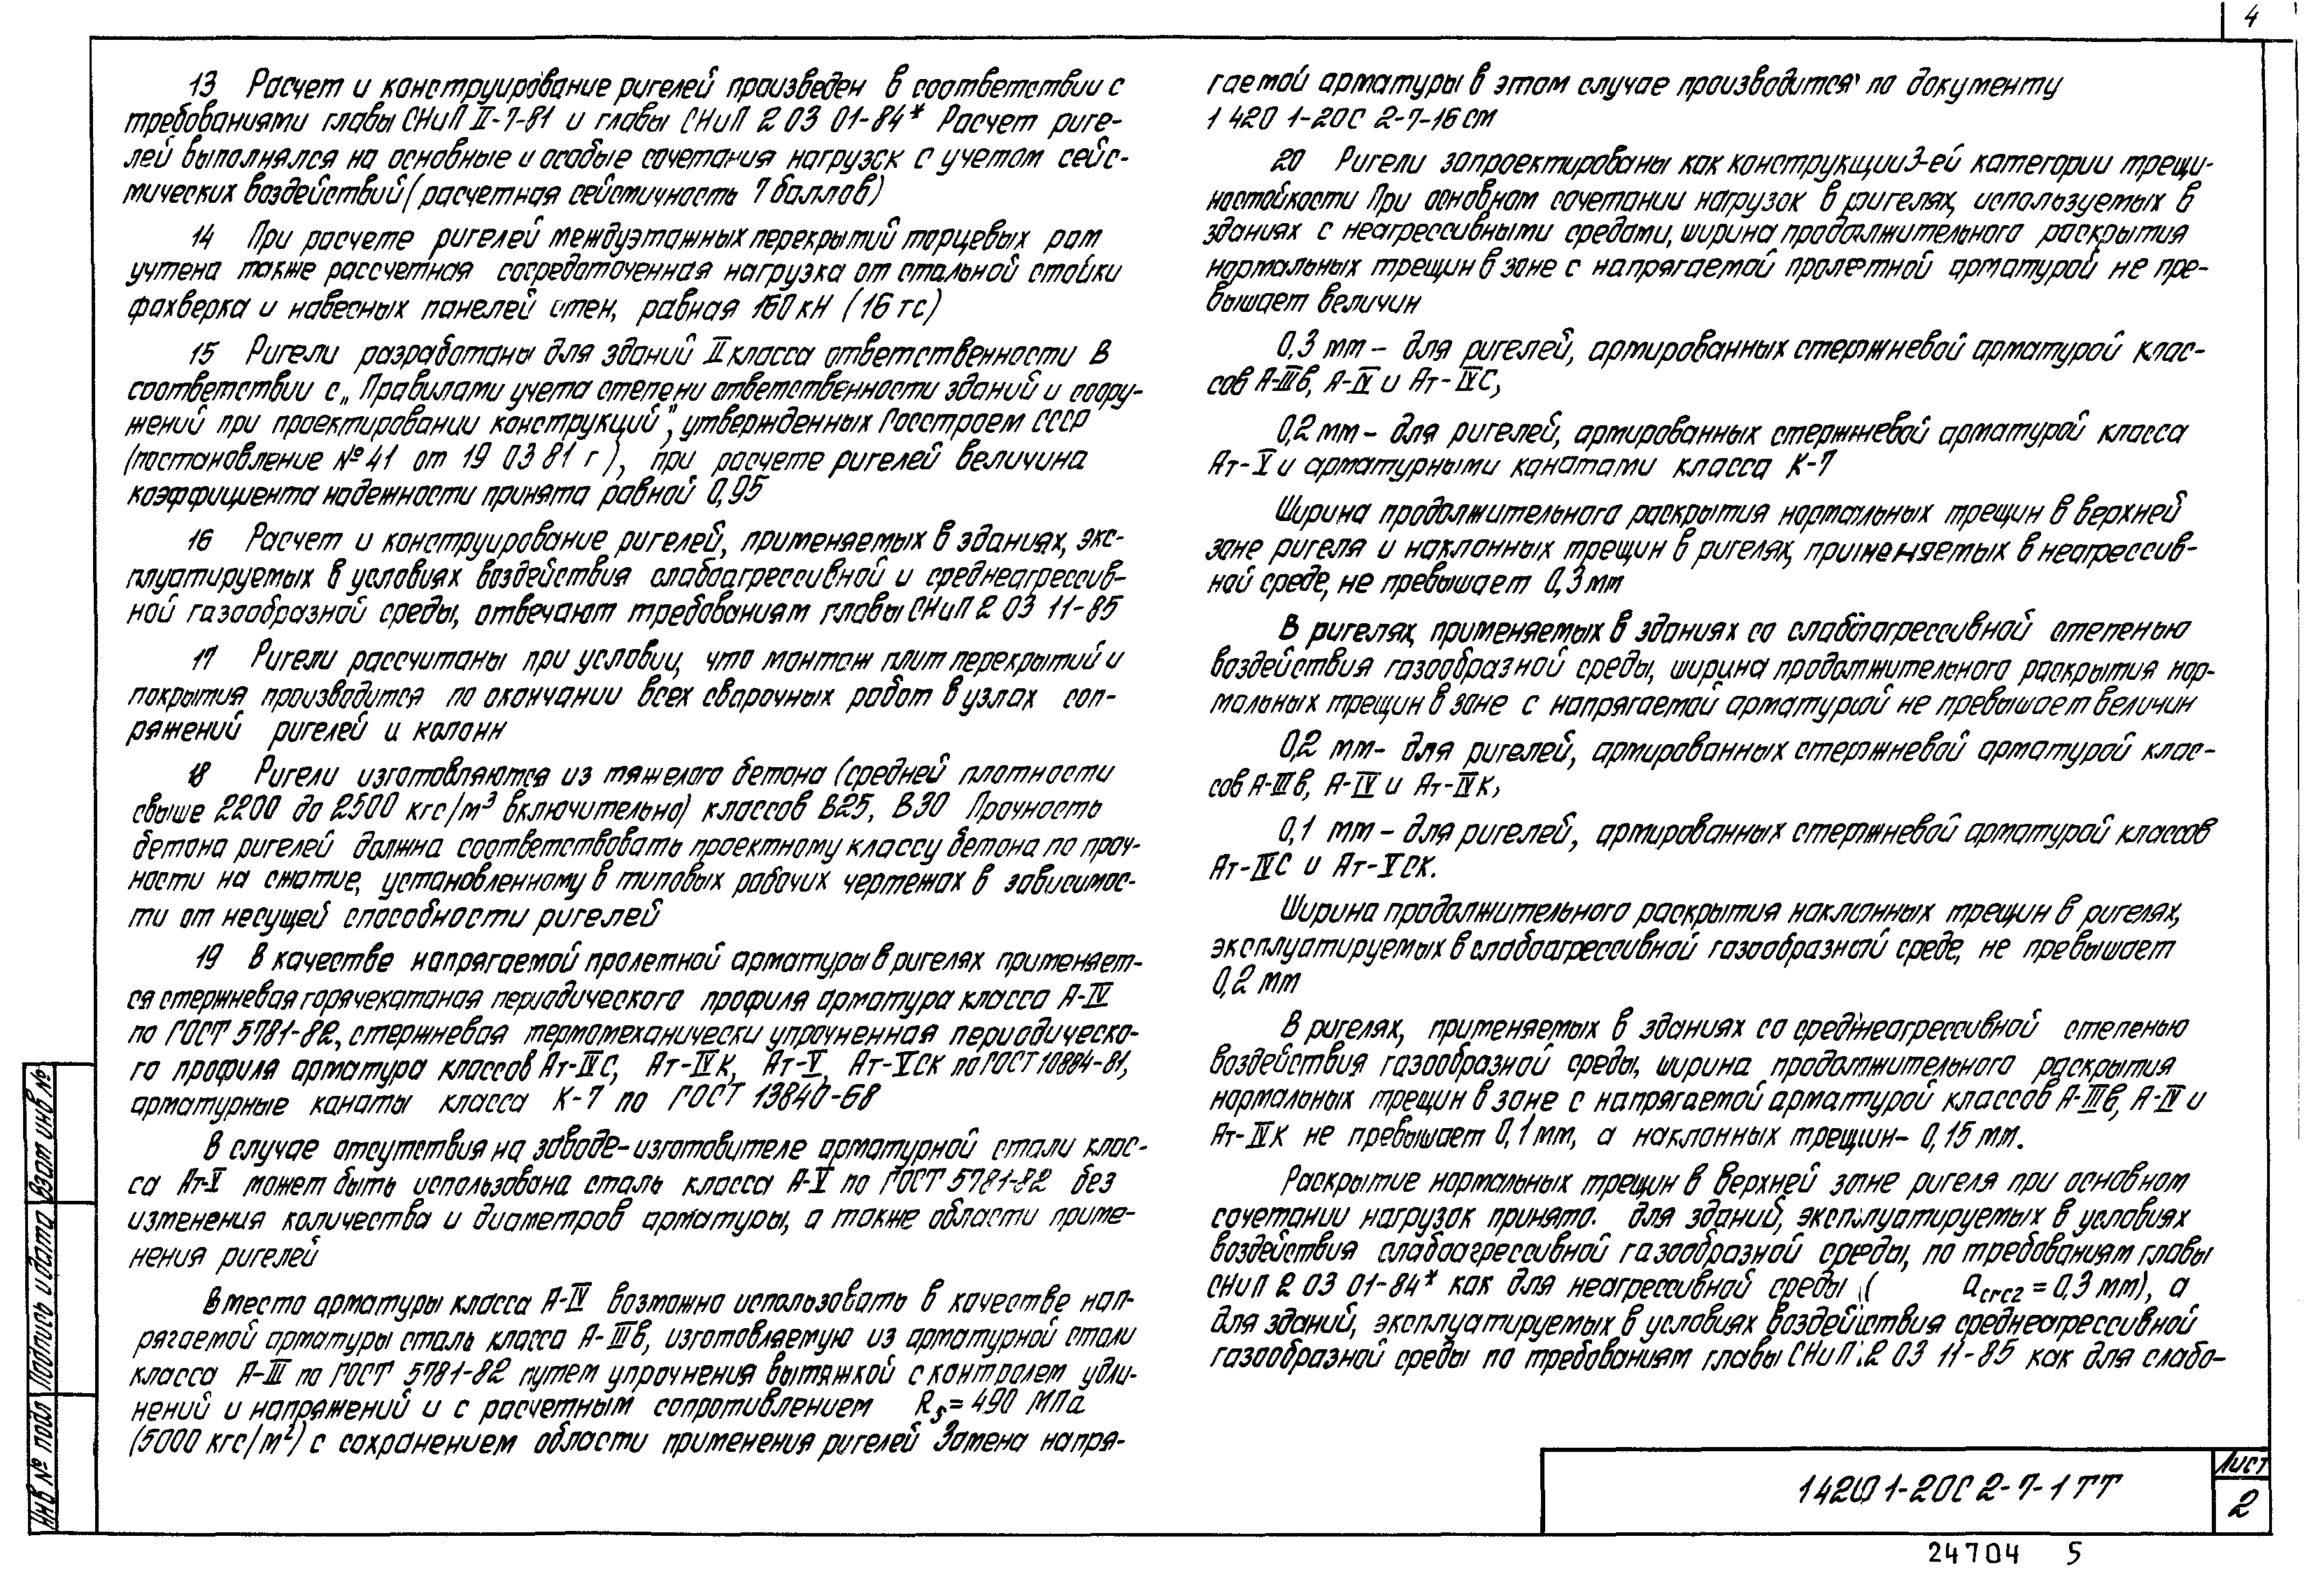 4
13 Расчет и конструирование ригелей произведен в соответствии с
требованиями главы СНиП II-7-81 и главы СНиП 2 03 01-84* Расчет риге-
лей выполнялся на основные и особые сочетания нагрузок с учетом сейс-
мических воздействий (расчетная сейсмичность 7 баллов)
14 При расчете ригелей междуэтажных перекрытий торцевых рам
учтена также рассчетная сосредоточенная нагрузка от стальной стойки
фахверка и навесных панелей стен, равная 160 кН (16 тс)
15 Ригели разработаны для зданий II класса ответственности В
соответствии с „Правилами учета степени ответственности зданий и соору-
жений при проектировании конструкций", утвержденных Госстроем СССР
(постановление №41 от 19 03 81 г), при расчете ригелей величина
коэффициента надежности принята равной 0,95
16 Расчет и конструирование ригелей, применяемых в зданиях, экс-
плуатируемых в условиях воздействия слабоагрессивной и среднеагрессив-
ной газообразной среды, отвечают требованиям главы СНиП 2 03 11-85
17 Ригели рассчитаны при условии, что монтаж плит перекрытий и
покрытия производится по окончании всех сварочных работ в узлах соп-
ряжений ригелей и колонн
18 Ригели изготовляются из тяжелого бетона (средней плотности
свыше 2200 до 2500 кгс/м³ включительно) классов В25, В30 Прочность
бетона ригелей должна соответствовать проектному классу бетона по проч-
ности на сжатие, установленному в типовых рабочих чертежах в зависимос-
ти от несущей способности ригелей
19 В качестве напрягаемой пролетной арматуры в ригелях применяет-
ся стержневая горячекатаная периодического профиля арматура класса А-IV
по ГОСТ 5781-82, стержневая термомеханически упрочненная периодическо-
го профиля арматура классов Ат-IVС, Ат-IVК, Ат-V, Ат-VСК по ГОСТ 10884-81,
арматурные канаты класса К-7 по ГОСТ 13840-68
В случае отсутствия на заводе-изготовителе арматурной стали клас-
са Ат-V может быть использована сталь класса А-V по ГОСТ 5781-82 без
изменения количества и диаметров арматуры, а также области приме-
нения ригелей
Вместо арматуры класса А-IV возможно использовать в качестве нап-
рягаемой арматуры сталь класса А-IIIв, изготовляемую из арматурной стали
класса А-III по ГОСТ 5781-82 путем упрочнения вытяжкой с контролем удли-
нений и напряжений и с расчетным сопротивлением Rs = 490 МПа
(5000 кгс/м²) с сохранением области применения ригелей Замена напря-
гаемой арматуры в этом случае производится по документу
1 420 1-20С 2-7-16 СМ
20 Ригели запроектированы как конструкции 3-ей категории трещи-
ностойкости При основном сочетании нагрузок в ригелях, используемых в
зданиях с неагрессивными средами, ширина продолжительного раскрытия
нормальных трещин в зоне с напрягаемой пролетной арматурой не пре-
вышает величин
0,3 мм – для ригелей, армированных стержневой арматурой клас-
сов А-IIIв, А-IV и Ат-IVС,
0,2 мм – для ригелей, армированных стержневой арматурой класса
Ат-V и арматурными канатами класса К-7
Ширина продолжительного раскрытия нормальных трещин в верхней
зоне ригеля и наклонных трещин в ригелях, применяемых в неагрессив-
ной среде, не превышает 0,3 мм
В ригелях, применяемых в зданиях со слабоагрессивной степенью
воздействия газообразной среды, ширина продолжительного раскрытия нор-
мальных трещин в зоне с напрягаемой арматурой не превышает величин
0,2 мм – для ригелей, армированных стержневой арматурой клас-
сов А-IIIв, А-IV и Ат-IVК,
0,1 мм – для ригелей, армированных стержневой арматурой классов
Ат-IVС и Ат-VСК.
Ширина продолжительного раскрытия наклонных трещин в ригелях,
эксплуатируемых в слабоагрессивной газообразной среде, не превышает
0,2 мм
В ригелях, применяемых в зданиях со среднеагрессивной степенью
воздействия газообразной среды, ширина продолжительного раскрытия
нормальных трещин в зоне с напрягаемой арматурой классов А-IIIв, А-IV и
Ат-IVК не превышает 0,1 мм, а наклонных трещин – 0,15 мм.
Раскрытие нормальных трещин в верхней зоне ригеля при основном
сочетании нагрузок принято. для зданий, эксплуатируемых в условиях
воздействия слабоагрессивной газообразной среды, по требованиям главы
СНиП 2 03 01-84* как для неагрессивной среды ( acrc2 = 0,3 мм), а
для зданий, эксплуатируемых в условиях воздействия среднеагрессивной
газообразной среды по требованиям главы СНиП 2 03 11-85 как для слабо-
Взам инв №
Подпись и дата
Инв № подл
1 420 1-20С 2-7-1 ТТ
Лист
2
24704 5